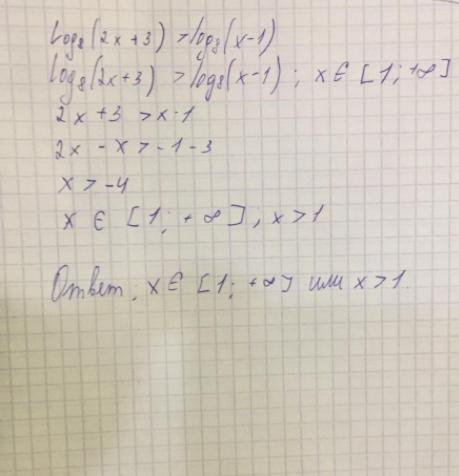 log₈(2x+3) > log₈(x-1)
log₈(2x+3) > log₈(x-1); x ∈ [1; +∞]
2x+3 > x-1
2x - x > -1-3
x > -4
x ∈ [1; +∞]; x > 1
Ответ: x ∈ [1; +∞] или x > 1.